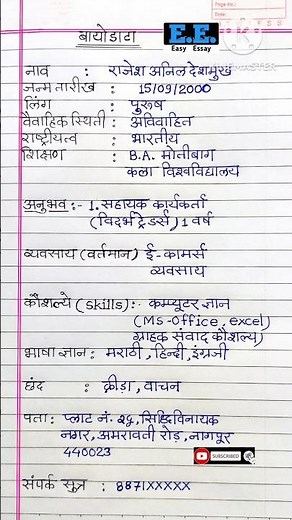 Page No.:
Date:
बायोडाटा
E.E.
Easy Essay
नाव : राजेश अनिल देशमुख
जन्म तारीख : 15/09/2000
लिंग : पुरूष
वैवाहिक स्थिती : अविवाहित
राष्ट्रीयत्व : भारतीय
शिक्षण : B.A. मोतीबाग
कला विश्वविद्यालय
अनुभव :- 1. सहायक कार्यकर्ता
(विदर्भ ट्रेडर्स) 1 वर्ष
व्यवसाय (वर्तमान) ई-कामर्स
व्यवसाय
कौशल्ये (skills) :- कम्प्यूटर ज्ञान
(MS-office, excel)
ग्राहक संवाद कौशल्य)
भाषा ज्ञान : मराठी, हिन्दी, इंग्रजी
छंद : क्रीडा, वाचन
पता : प्लाट नं. २५, सिध्दिविनायक
नगर, अमरावती रोड़, नागपूर
440023
SUBSCRIBED
संपर्क सुत्र : 8871XXXXX